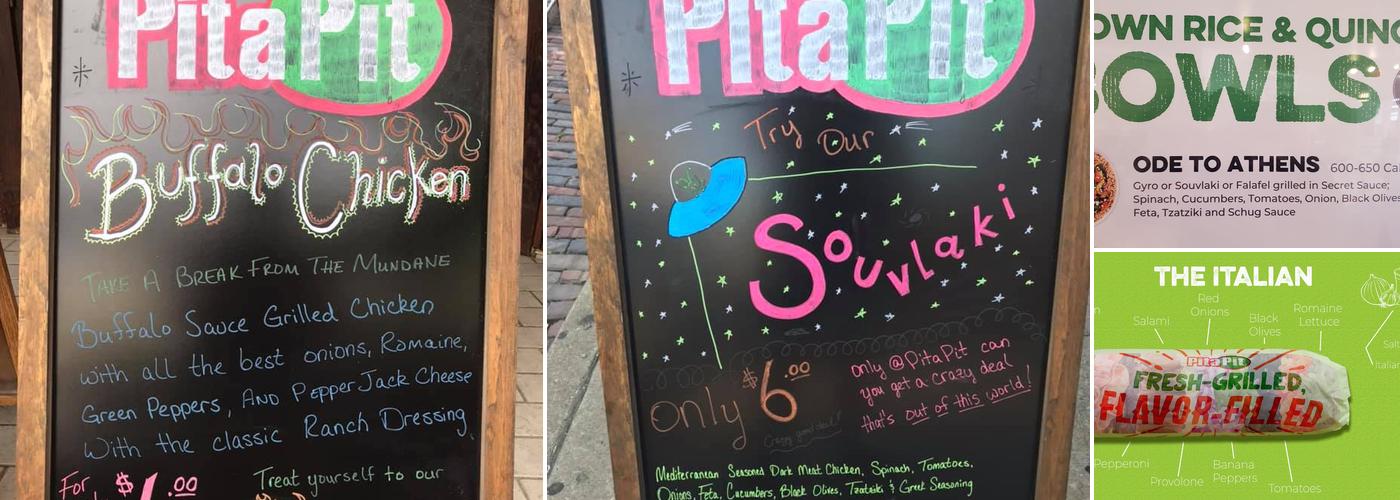 PitaPit
Buffalo Chicken
TAKE A BREAK FROM THE MUNDANE
Buffalo Sauce Grilled Chicken
with all the best onions, Romaine,
Green Peppers, AND PepperJack Cheese
With the classic Ranch Dressing
For $ .00
Treat yourself to our
PitaPit
Try Our
Souvlaki
only $6.00
Crazy good deal!
only @PitaPit can
you get a crazy deal
that's out of this world!
Mediterranean Seasoned Dark Meat Chicken, Spinach, Tomatoes,
Onions, Feta, Cucumbers, Black Olives, Tzatziki & Greek Seasoning
OWN RICE & QUINO
BOWLS
ODE TO ATHENS 600-650 Cal
Gyro or Souvlaki or Falafel grilled in Secret Sauce;
Spinach, Cucumbers, Tomatoes, Onion, Black Olives
Feta, Tzatziki and Schug Sauce
THE ITALIAN
Salami
Red
Onions
Black
Olives
Romaine
Lettuce
Salt
Italian
PitaPit
FRESH-GRILLED,
FLAVOR-FILLED
Pepperoni
Provolone
Banana
Peppers
Tomatoes